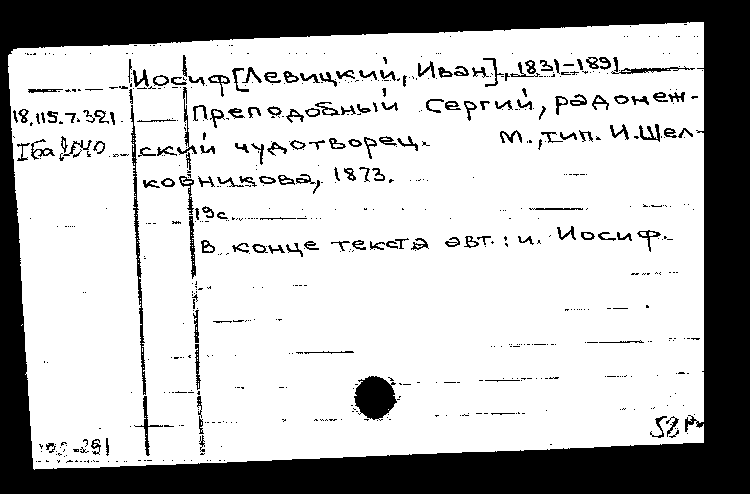 Иосиф[Левицкий, Иван], 1831-1891
18.115.7.321 Преподобный Сергий, радонеж-
ский чудотворец. М., тип. И. Шел-
ковникова, 1873.
19с.
В конце текста авт.: и. Иосиф.